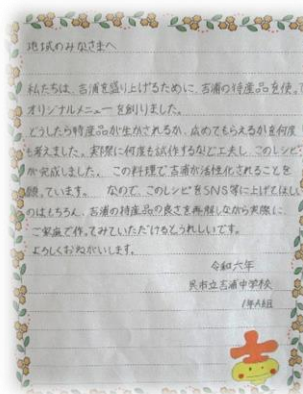 地域のみなさまへ
私たちは、吉浦を盛り上げるために、吉浦の特産品を使って
オリジナルメニューを創りました。
どうしたら特産品が生かされるか、広めてもらえるかを何度
も考えました。実際に何度も試作するなど工夫し、このレシピ
が完成しました。この料理で吉浦が活性化されることを
願っています。なので、このレシピをSNS等に上げてほしい
のはもちろん、吉浦の特産品の良さを理解しながら実際に
ご家庭で作ってみていただけるとうれしいです。
よろしくおねがいします。
令和六年
呉市立吉浦中学校
1年A組